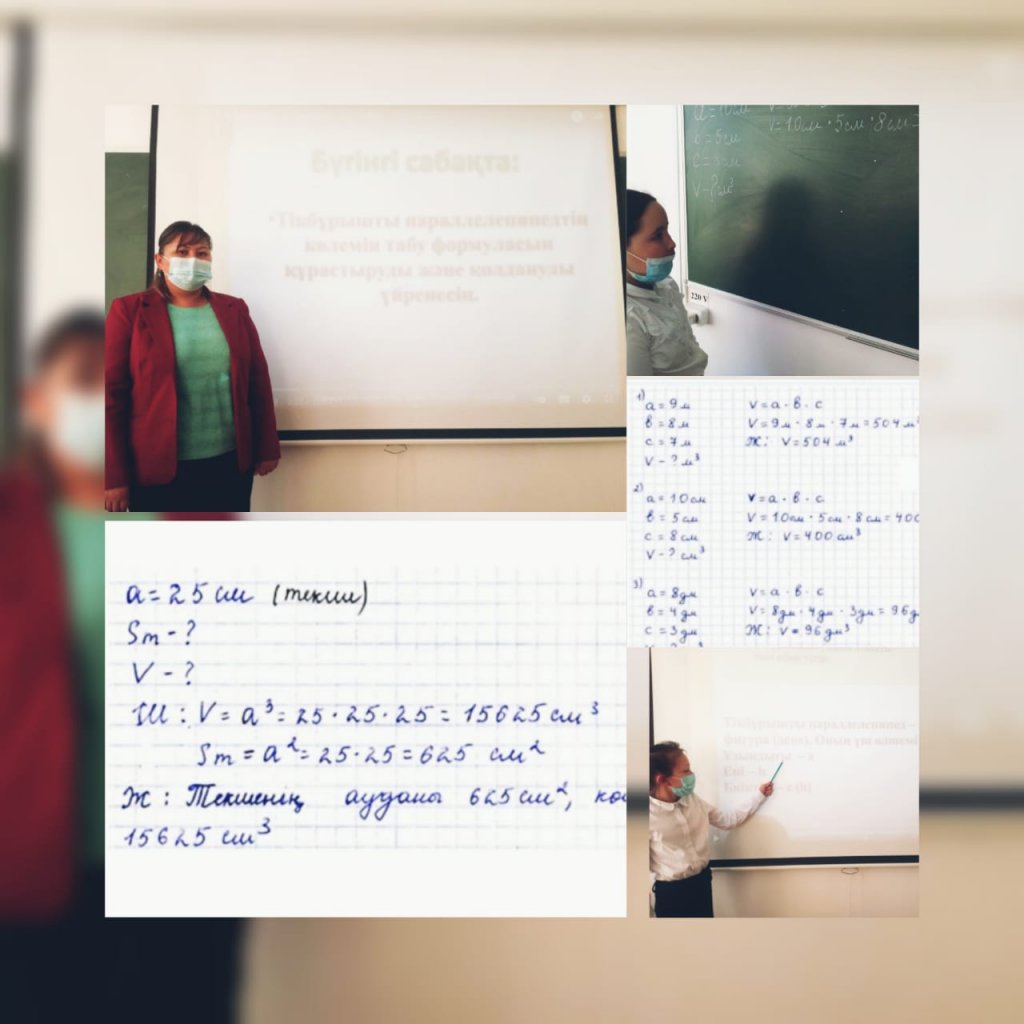 Бүгінгі сабақта:
•Тікбұрышты параллелепипедтің
көлемін табу формуласын
құрастыруды және қолдануды
үйренесің.
a=10см
в=5см
V=10см·5см·8см=
V-?м³
220 V
1)
a=9м
в=8м
c=7м
V-?м³
V=a·в·c
V=9м·8м·7м=504м³
Ж: V=504м³
2)
a=10см
в=5см
c=8см
V-?см³
V=a·в·c
V=10см·5см·8см=400
Ж: V=400см³
3)
a=8дм
в=4дм
c=3дм
V=a·в·c
V=8дм·4дм·3дм=96д
Ж: V=96дм³
a=25см (текше)
Sт-?
V-?
Ш: V=a³=25·25·25=15625см³
Sт=a²=25·25=625 см²
Ж: Текшенің ауданы 625см², кө
15625см³
Тікбұрышты параллелепипед –
фигура (дене). Оның үш өлшемі
Ұзындығы – a
Ені – b
c (h)